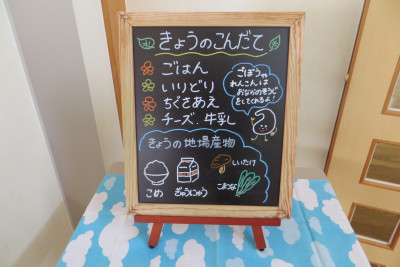 きょうのこんだて
ごはん
いりどり
ちぐさあえ
チーズ、牛乳
ごぼうや
れんこんは
おなかのそうじ
をしてくれるよ!
きょうの地場産物
しいたけ
こめ
ぎゅうにゅう
こまつな